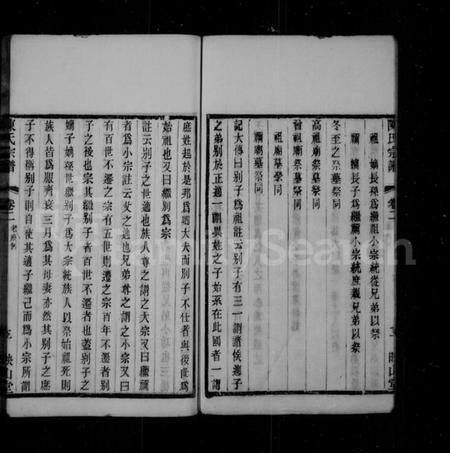 陳氏宗譜 卷二
祖 嫡長孫爲繼祖小宗統從兄弟以祭
禰 嫡長子爲繼禰小宗統庶親兄弟以祭
冬至之祭墓祭同
高祖廟祭墓祭同
曾祖廟祭墓祭同
祖廟墓祭同
禰廟墓祭同
記大傳曰別子爲祖註云別子有三一謂諸侯適子
之弟別於正適一謂異姓之子始來在此國者一謂
庶姓起於是邦爲大夫而別子不仕者與後世爲
始祖也又曰繼別爲宗
註云別子之世適也族人尊之謂之大宗又曰繼禰
者爲小宗註云父之適也兄弟尊之謂之小宗又曰
有百世不遷之宗有五世則遷之宗百世不遷者別
子之後也宗其繼別子者百世不遷者也蓋別子之
嫡子嫡孫世繼別子爲大宗統族人以祭始祖死則
族人皆爲服齊衰三月爲其母妻亦然其別子之庶
子不得禰別子則自使其適子繼己而爲小宗所謂
陳氏宗譜 卷二
三 映山堂
FamilySearch